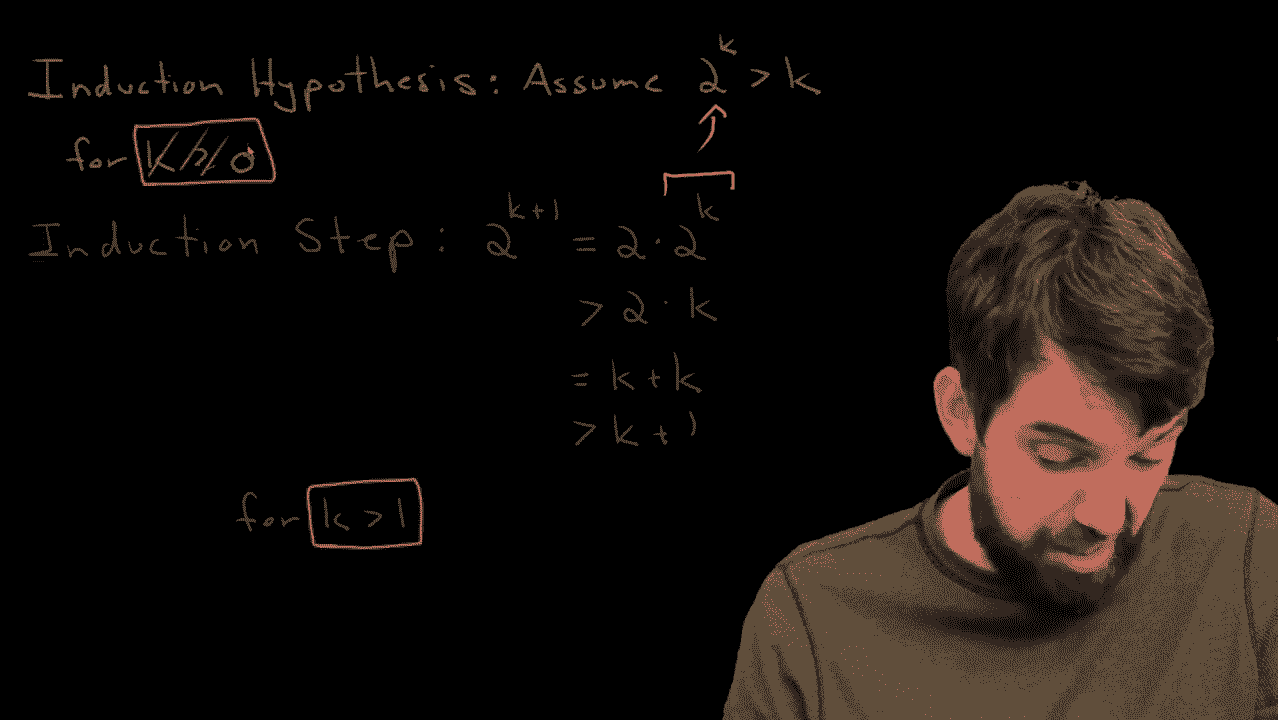 Induction Hypothesis: Assume 2^k > k
for
Induction Step: 2^(k+1) = 2·2^k
> 2·k
= k+k
> k+1
for k>1